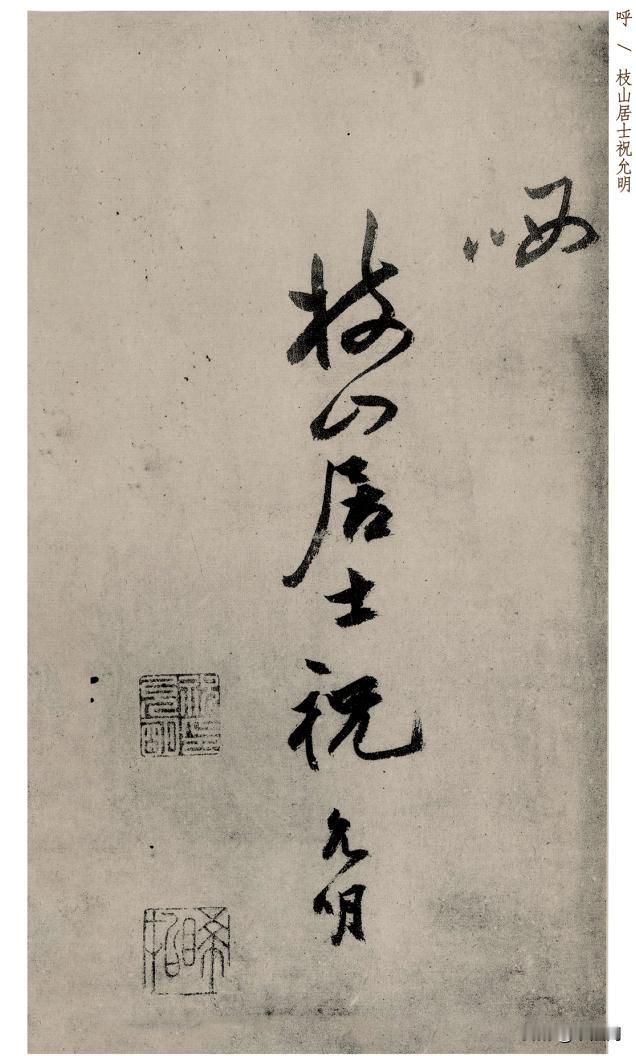 呼 \ 枝山居士祝允明
枝山居士祝允明